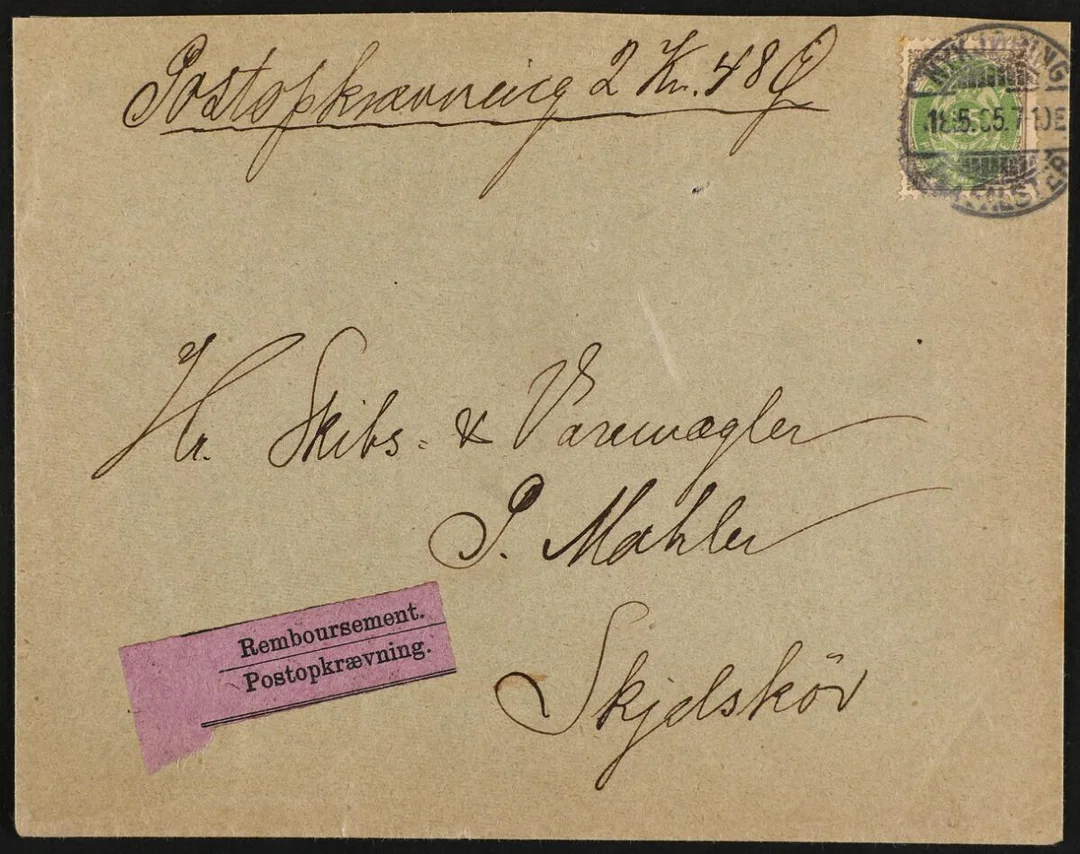 Postopkrævning 2 Kr. 48 Ø
NYKJØBING
18.5.05. 7-10E
FALSTER
25
Hr. Skibs- & Varemægler
P. Mahler
Remboursement.
Postopkrævning.
Skjelskör